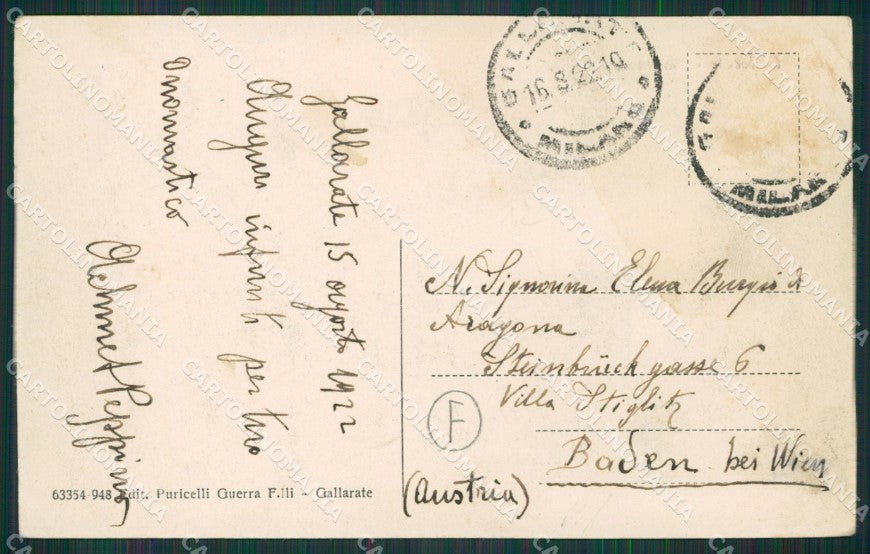 Gallarate 15 agosto 1922
Auguri infiniti per tuo
onomastico
Peppino
63354-948 Edit. Puricelli Guerra F.lli - Gallarate
GALLARATE
16.8.22.19
MILANO
MILAN
N. Signorina Elena Burgio di
Aragona
Steinbrückgasse 6
Villa Stiglitz
Baden bei Wien
(Austria)
F
CARTOLINOMANIA